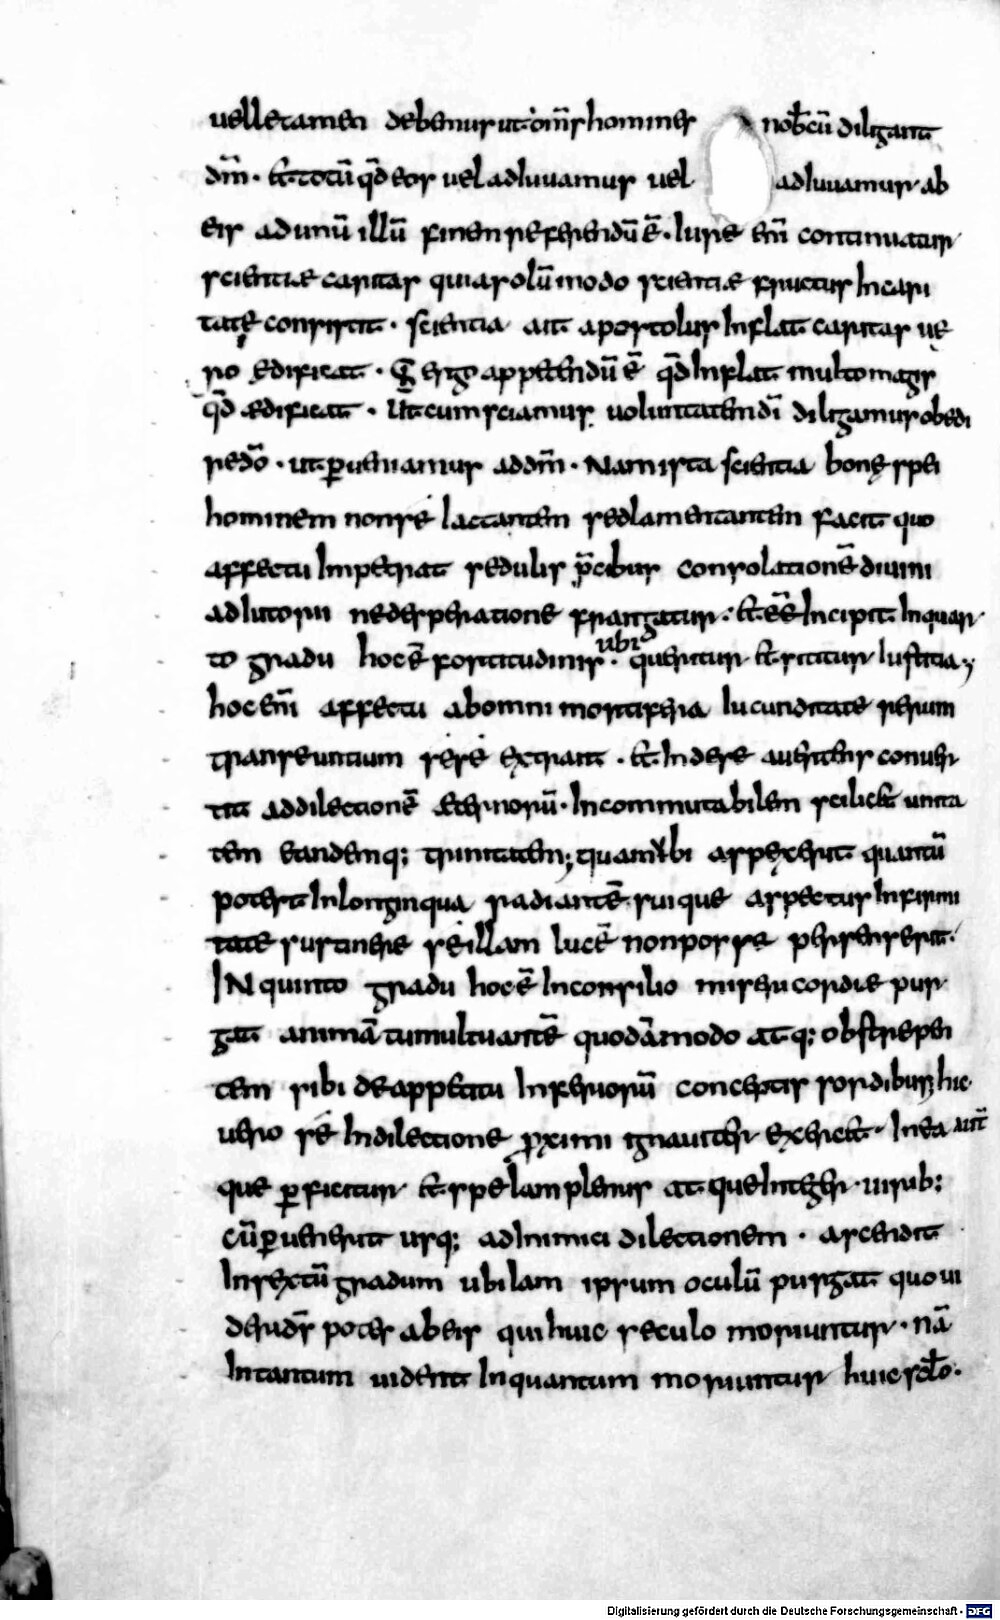 uelle tamen debemus ut om̅s homines nob̅cu̅ diligant
dm̅ · & totu̅ qd̅ eos uel adiuuamus uel adiuuamur ab
eis ad unu̅ illu̅ finem referendu̅ e̅ · Iure eni̅ continuatur
scientiae caritas quia solu̅modo scientiae fructus in cari
tate consistit · scientia ait apostolus inflat caritas ue
ro ędificat · ergo appetendu̅ e̅ qd̅ inflat multo magis
qd̅ aedificat · Ut cum sciamus uoluntatem di̅ diligamus obedi
redo̅ · ut ꝑueniamus ad dm̅ · Nam ista scientia bonę spei
hominem non se iactantem sed lamentantem facit quo
affectu impetrat sedulis p̅cibus consolatione̅ diuini
adiutorii ne desperatione frangatur · & ee̅ incipit in quar
to gradu hoc e̅ fortitudinis · ubi queritur & sititur iustitia;
hoc eni̅ affectu ab omni mortifera iucunditate rerum
transeuntium sese extrait · & inde se auertens conuer
tit ad dilectione̅ aeternoru̅ · Incommutabilem scilic& unita
tem eandemq; trinitatem; quam ubi aspexerit quantu̅
potest in longinqua radiante̅ suique aspectus infirmi
tate sustinere se illam luce̅ non posse persenserit ·
IN quinto gradu hoc e̅ in consilio misericordiae pur
gat anima̅ tumultuante̅ quoda̅modo atq; obstrepen
tem sibi de appetitu inferioru̅ conceptis sordibus; hic
uero se in dilectione proximi ignauiter exerc& · In ea aut̅
que ꝑficitur & spe iam plenus atque integer uirib;
cu̅ ꝑuenerit usq; ad inimici dilectionem · ascendit
in sextu̅ gradum ubi iam ipsum oculu̅ purgat quo ui
deri ds̅ potest ab eis qui huic seculo moriuntur · na̅
in tantum uident in quantum moriuntur huic scl̅o ·
Digitalisierung gefördert durch die Deutsche Forschungsgemeinschaft - DFG